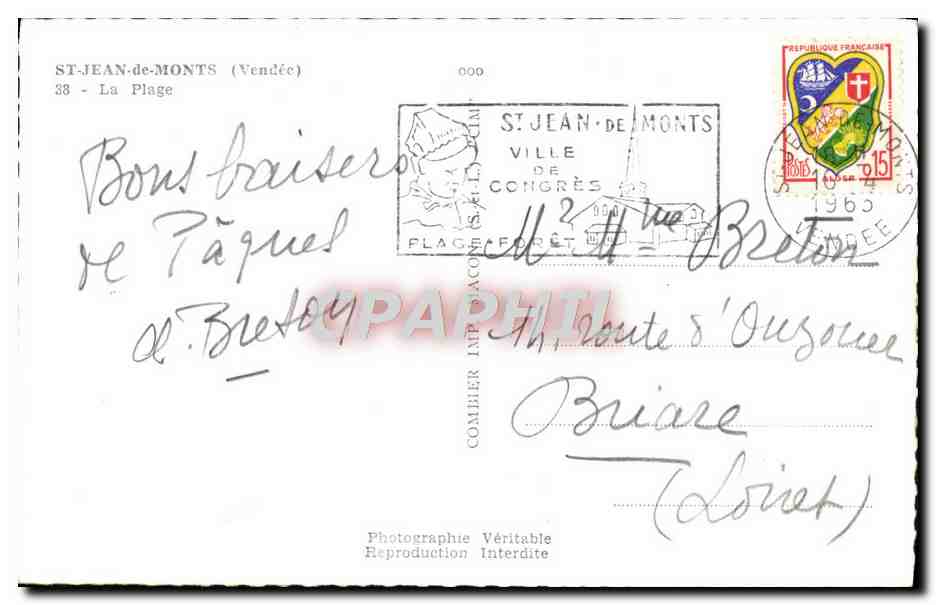 ST-JEAN-de-MONTS (Vendée)
38 - La Plage
Bons baisers
de Pâques
d. Bretoy
COMBIER IMP. MACON (S.-et-L.) "CIM"
ST JEAN·DE MONTS
VILLE
DE
CONGRÈS
PLAGE·FORÊT
REPUBLIQUE FRANÇAISE
POSTES
ALGER
0,15
ST JEAN DE MONTS
10 -4
1963
VENDEE
Mr Mme Breton
Th, route d'Ouzouer
Briare
(Loiret)
CPAPHIL
Photographie Véritable
Reproduction Interdite